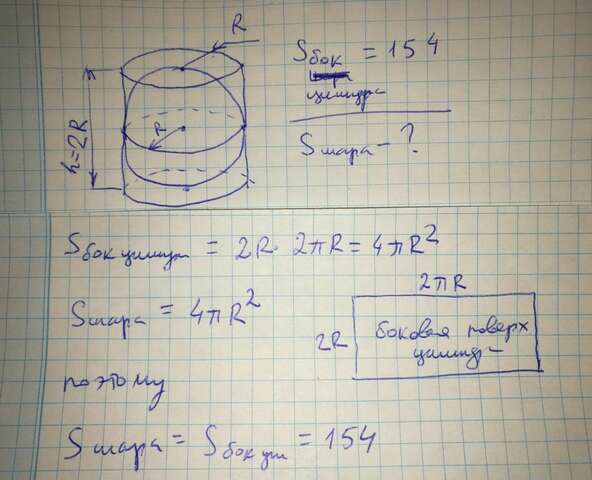 R
Sбок = 154
цилиндра
h=2R
R
Sшара - ?
Sбок цилиндр = 2R · 2πR = 4πR²
2πR
Sшара = 4πR²
2R
боковая поверх
цилиндр
поэтому
Sшара = Sбок цил = 154